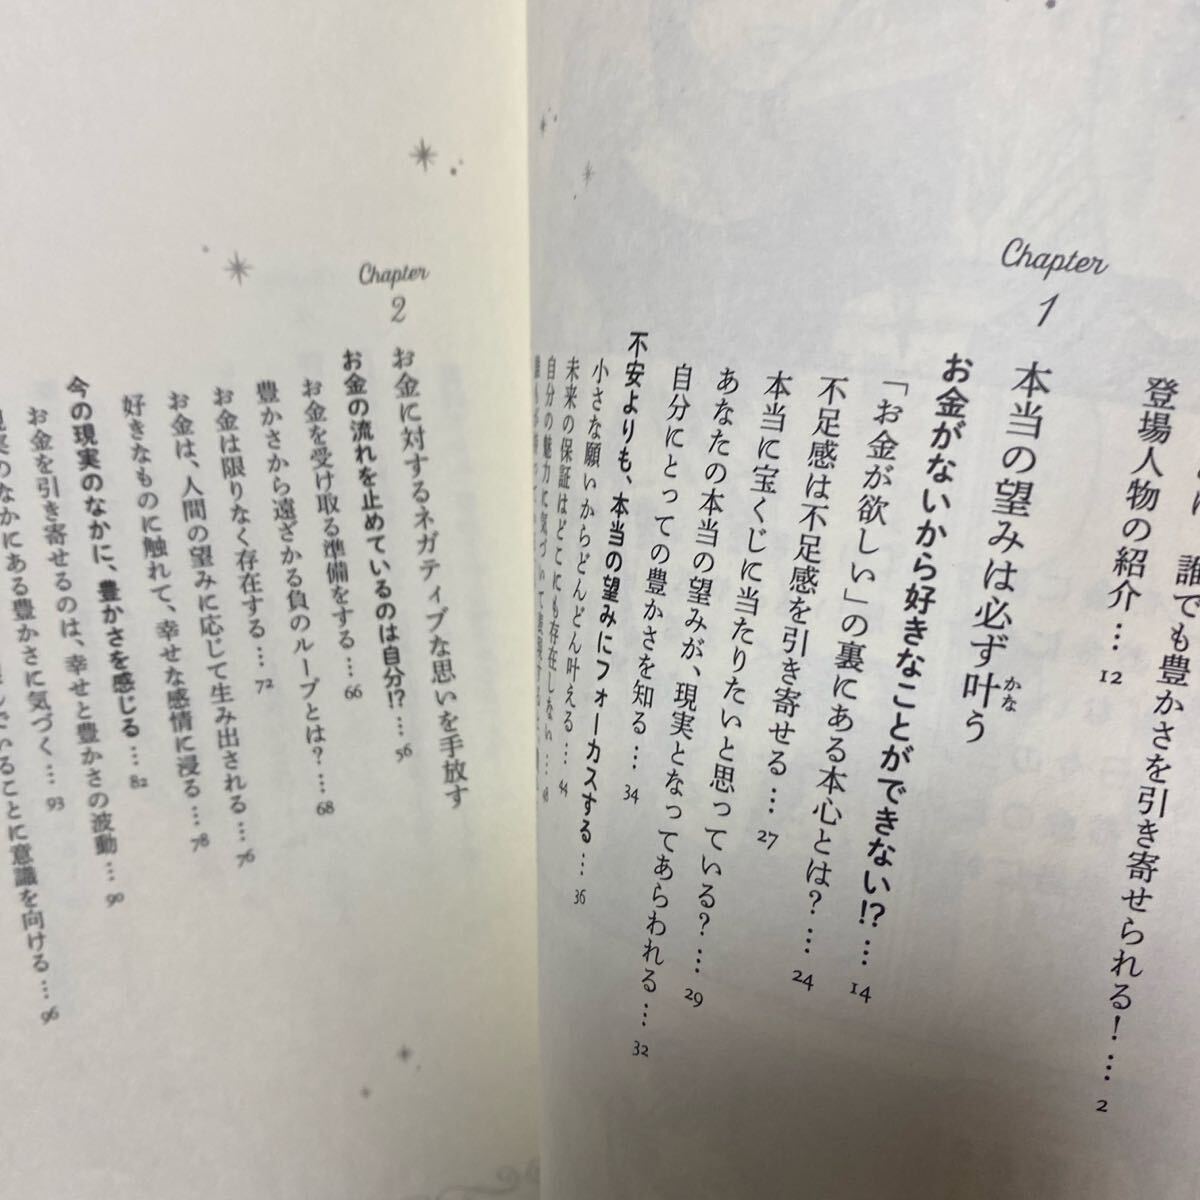 誰でも豊かさを引き寄せられる！… 2
登場人物の紹介… 12
Chapter
1
本当の望みは必ず叶う
かな
お金がないから好きなことができない!?… 14
「お金が欲しい」の裏にある本心とは？… 24
不足感は不足感を引き寄せる… 27
本当に宝くじに当たりたいと思っている？… 29
あなたの本当の望みが、現実となってあらわれる… 32
自分にとっての豊かさを知る… 34
不安よりも、本当の望みにフォーカスする… 36
小さな願いからどんどん叶える… 44
未来の保証はどこにも存在しない… 48
自分の魅力に気づいて
Chapter
2
お金に対するネガティブな思いを手放す
お金の流れを止めているのは自分!?… 56
お金を受け取る準備をする… 66
豊かさから遠ざかる負のループとは？… 68
お金は限りなく存在する… 72
お金は、人間の望みに応じて生み出される… 76
好きなものに触れて、幸せな感情に浸る… 78
今の現実のなかに、豊かさを感じる… 82
お金を引き寄せるのは、幸せと豊かさの波動… 90
現実のなかにある豊かさに気づく… 93
でいることに意識を向ける… 96